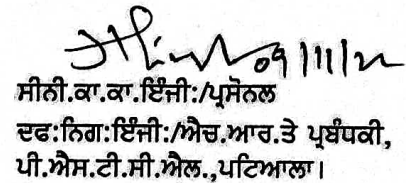 09/11/22
ਸੀਨੀ.ਕਾ.ਕਾ.ਇੰਜੀ:/ਪ੍ਰਸੋਨਲ
ਦਫ:ਨਿਗ:ਇੰਜੀ:/ਐਚ.ਆਰ.ਤੇ ਪ੍ਰਬੰਧਕੀ,
ਪੀ.ਐਸ.ਟੀ.ਸੀ.ਐਲ.,ਪਟਿਆਲਾ।